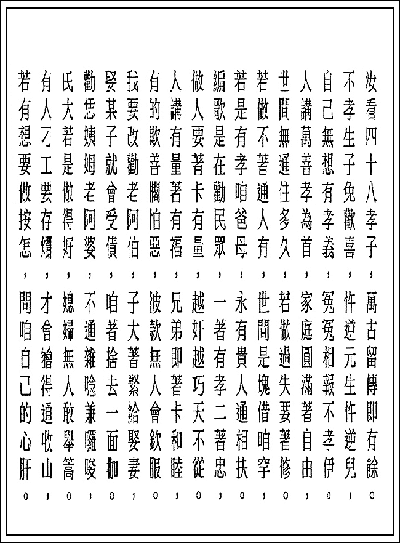 汝看四十八孝子，萬古留傳即有餘。
不孝生子免歡喜，忤逆元生忤逆兒。
自己無想子孝義，冤冤相報不孝伊。
人講萬善孝為首，家庭圓滿著自由。
世間無通住多久，若做過失要著修。
若做不著通人有，世間是塊借咱。
若是有孝咱爸母，永有貴人通相扶。
編歌是在勸民眾，一著有孝二著忠。
做人要著卡有量，越奸越巧天不從。
人講有量著有福，兄弟即著卡和睦。
有的欺善怕惡，彼款無人會欽服。
我要改勸老阿伯，子大著緊娶妻。
娶某子就會受債，咱著捨去一面枷。
勸恁姨姆老阿婆，不通雜唸兼囉唆。
氏大若是做得好，媳婦無人敢舉篙。
有人刁工要存，才會得通收山。
若有想要做按怎，問咱自己的心肝。